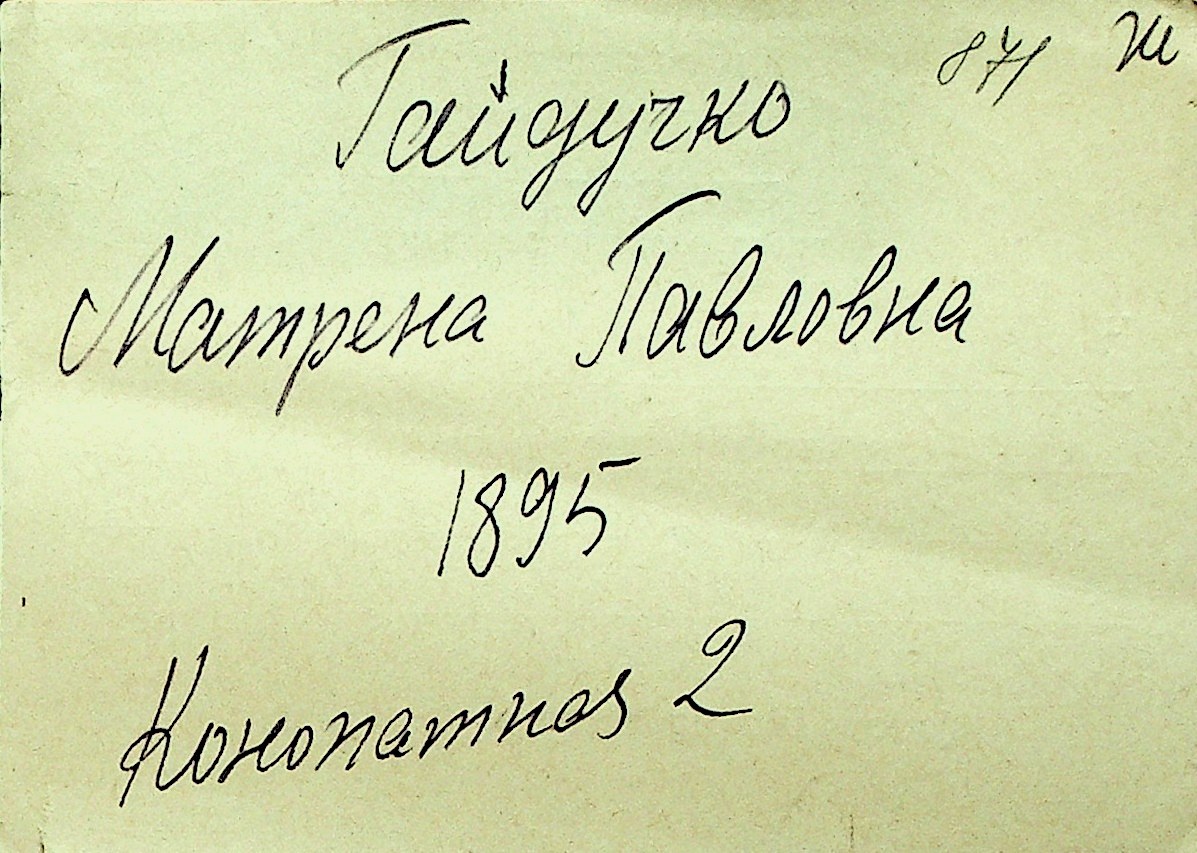 Гайдучко 871 Ж
Матрена Павловна
1895
Конопатная 2